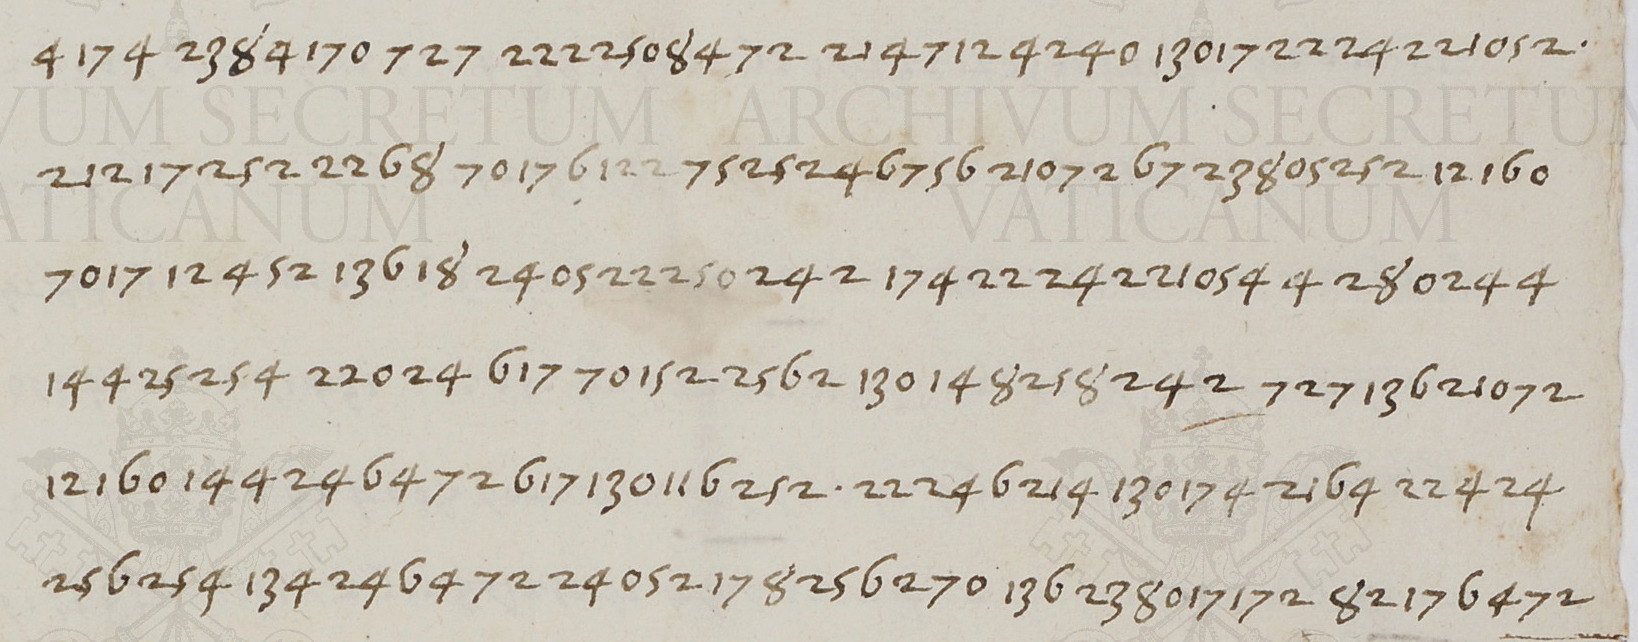 4 174 2384170 727 2222508472 2147124240 130172224221052.
21217252 2268 7017612275252467562107267238052521 2160
7017 12452 13618 24052225024 2 174222422105 4 4 280244
144252 54 22024 617 70152 2562 13014825824 2 727136210 72
12160144246472617130116252. 22246214 130174 2164 22424
256254 1342464722405217825 6270 136 238017172 82176472
ARCHIVUM SECRETUM
VATICANUM